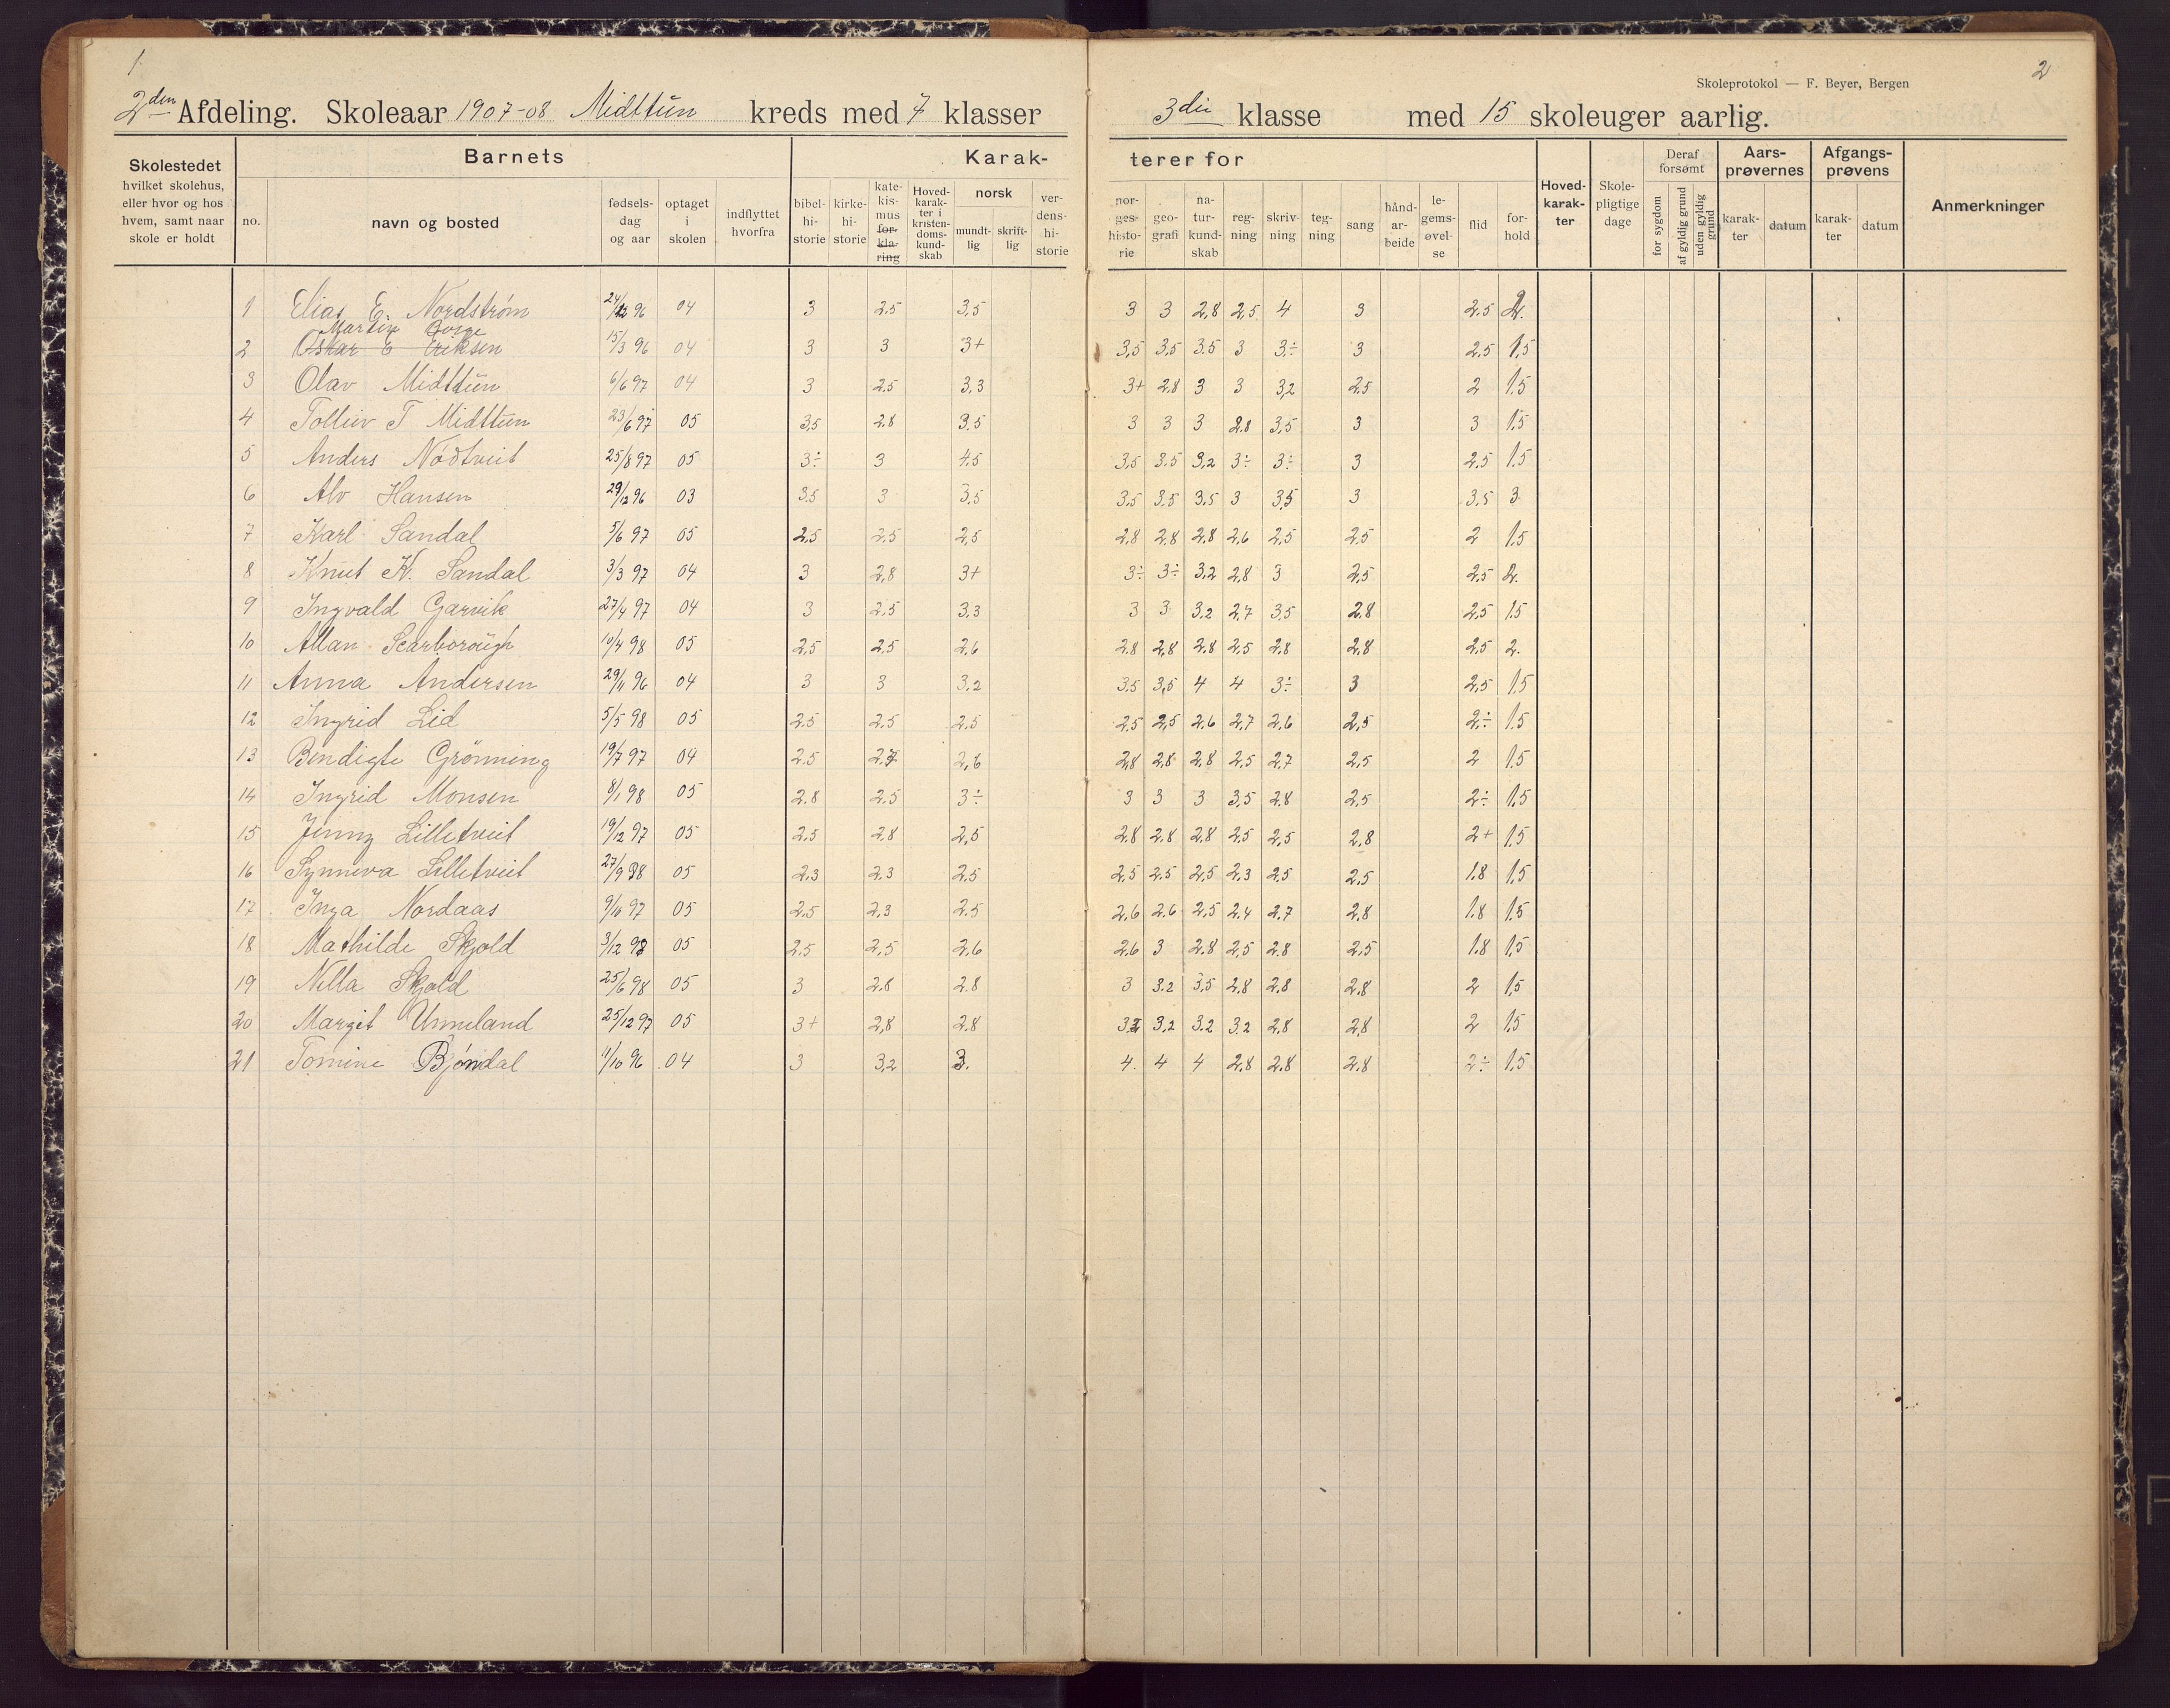 1.
2
Skoleprotokol — F. Beyer, Bergen
2den Afdeling. Skoleaar 1907-08 Midttun kreds med 7 klasser 3die klasse med 15 skoleuger aarlig.
Skolestedet hvilket skolehus, eller hvor og hos hvem, samt naar skole er holdt
Barnets
no. navn og bosted fødselsdag og aar optaget i skolen indflyttet hvorfra
Karakterer for
bibelhistorie kirkehistorie katekismus forklaring Hovedkarakter i kristendomskundskab norsk mundtlig skriftlig verdenshistorie
norgeshistorie geografi naturkundskab regning skrivning tegning sang håndarbeide legemsøvelse flid forhold
Hovedkarakter Skolepligtige dage Deraf forsømt for sygdom af gyldig grund uden gyldig grund
Aarsprøvernes karakter datum Afgangsprøvens karakter datum Anmerkninger
1 Elias E. Nordstrøm 24/12 96 04 3 2.5 3,5 3 3 2,8 2,5 4 3 2.5 2.
Martin
2 Oskar E Eriksen 15/3 96 04 3 3 3+ 3,5 3,5 3.5 3 3÷ 3 2,5 1,5
3 Olav Midttun 6/6 97 04 3 2.5 3,3 3+ 2.8 3 3 3,2 2.5 2 1.5
4 Tolleiv T Midttun 23/6 97 05 3,5 2.8 3.5 3 3 3 2.8 3,5 3 3 1.5
5 Anders Nødtveit 25/8 97 05 3÷ 3 4.5 3,5 3.5 3,2 3÷ 3÷ 3 2.5 1.5
6 Alv Hansen 29/12 96 03 3.5 3 3,5 3.5 3,5 3,5 3 3,5 3 3.5 3
7 Karl Sandal 5/6 97 05 2,5 2,5 2,5 2,8 2,8 2,8 2,6 2,5 2,5 2 1.5
8 Knut K. Sandal 3/3 97 04 3 2,8 3+ 3÷ 3÷ 3,2 2,8 3 2,5 2,5 2.
9 Ingvald Garvik 27/4 97 04 3 2,5 3.3 3 3 3,2 2,7 3,5 2.8 2,5 1.5
10 Allan Scarborough 10/4 98 05 2,5 2,5 2,6 2.8 2,8 2.8 2,5 2,8 2,8 2,5 2.
11 Anna Andersen 29/11 96 04 3 3 3.2 3.5 3,5 4 4 3÷ 3 2,5 1.5
12 Ingrid Lid 5/5 98 05 2.5 2.5 2.5 2,5 2,5 2.6 2,7 2,6 2,5 2÷ 1.5
13 Bendigte Grønning 19/7 97 04 2.5 2,6 2,8 2,8 2,8 2,5 2,7 2,5 2 1.5
14 Ingrid Monsen 8/1 98 05 2.8 2.5 3÷ 3 3 3 3,5 2.8 2,5 2÷ 1,5
15 Jenny Lilletveit 19/12 97 05 2.5 2.8 2,5 2.8 2.8 2.8 2,5 2,5 2,8 2+ 1,5
16 Synneva Lilletveit 27/9 98 05 2,3 2.3 2.5 2,5 2.5 2,5 2,3 2,5 2,5 1.8 1,5
17 Inga Nordaas 9/10 97 05 2.5 2,3 2.5 2,6 2.6 2,5 2,4 2,7 2,8 1.8 1.5
18 Mathilde Skjold 3/12 98 05 2.5 2,5 2,6 2,6 3 2.8 2,5 2,8 2,5 1.8 1,5
19 Nella Skjold 25/6 98 05 3 2.8 2.8 3 3.2 3,5 2,8 2,8 2.8 2 1,5
20 Margit Unneland 25/12 97 05 3+ 2,8 2.8 3.2 3,2 3.2 3.2 2,8 2,8 2 1.5
21 Tomine Bjøndal 11/10 96 04 3 3,2 3. 4. 4 4 2,8 2.8 2.8 2÷ 1,5